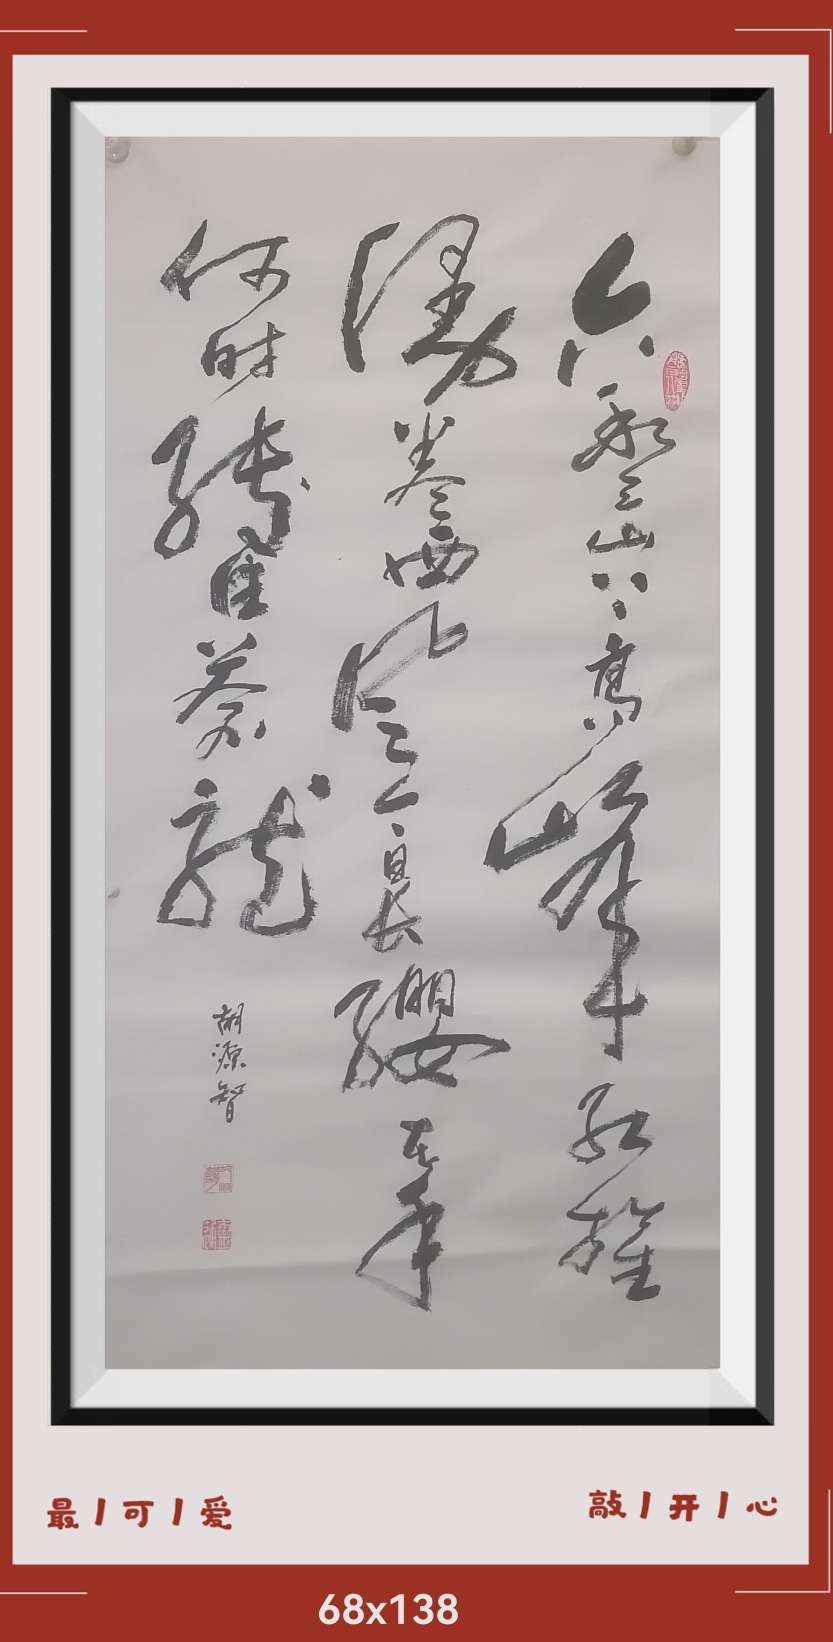 六盘山上高峰红旗
漫卷西风今日长缨在手
何时缚住苍龍
胡源智
最丨可丨爱
敲丨开丨心
68x138